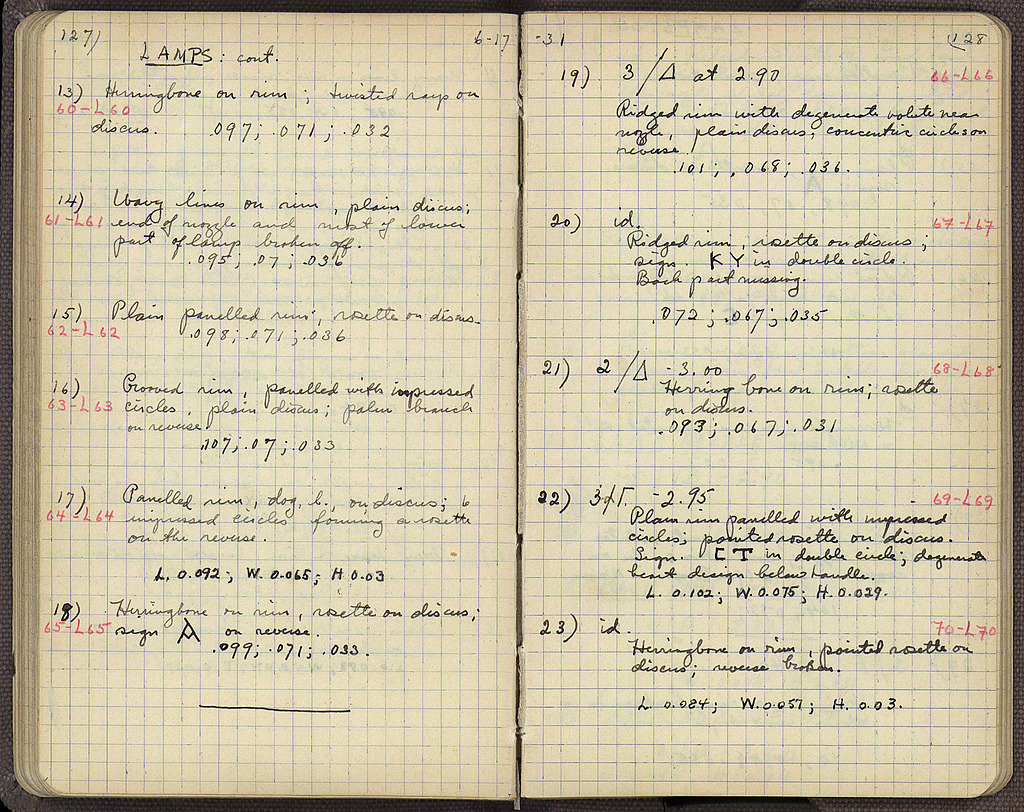 127)
6-17
LAMPS: cont.
13) Herringbone on rim; twisted rays on
60-L60
discus. .097; .071; .032
14) Wavy lines on rim, plain discus;
61-L61 end of nozzle and most of lower
part of lamp broken off.
.095; .07; .036
15) Plain panelled rim; rosette on discus.
62-L62 .098; .071; .036
16) Grooved rim, panelled with impressed
63-L63 circles, plain discus; palm branch
on reverse.
.107; .07; .033
17) Panelled rim, dog, l., on discus; 6
64-L64 impressed circles forming a rosette
on the reverse.
L. 0.092; W. 0.065; H 0.03
18) Herringbone on rim, rosette on discus;
65-L65 sign A on reverse.
.099; .071; .033.
-31
128
19) 3/Δ at 2.90 66-L66
Ridged rim with degenerate volute near
nozle, plain discus, concentric circles on
reverse.
.101; .068; .036.
20) id. 67-L67
Ridged rim, rosette on discus;
sign. KY in double circle.
Back part missing.
.072; .067; .035
21) 2/Δ -3.00 68-L68
Herring bone on rim; rosette
on discus.
.093; .067; .031
22) 3/Γ. -2.95 69-L69
Plain rim panelled with impressed
circles; pointed rosette on discus.
Sign. CT in double circle; degenerate
heart design below handle.
L. 0.102; W. 0.075; H. 0.029.
23) id. 70-L70
Herringbone on rim, pointed rosette on
discus; reverse broken.
L. 0.084; W. 0.057; H. 0.03.